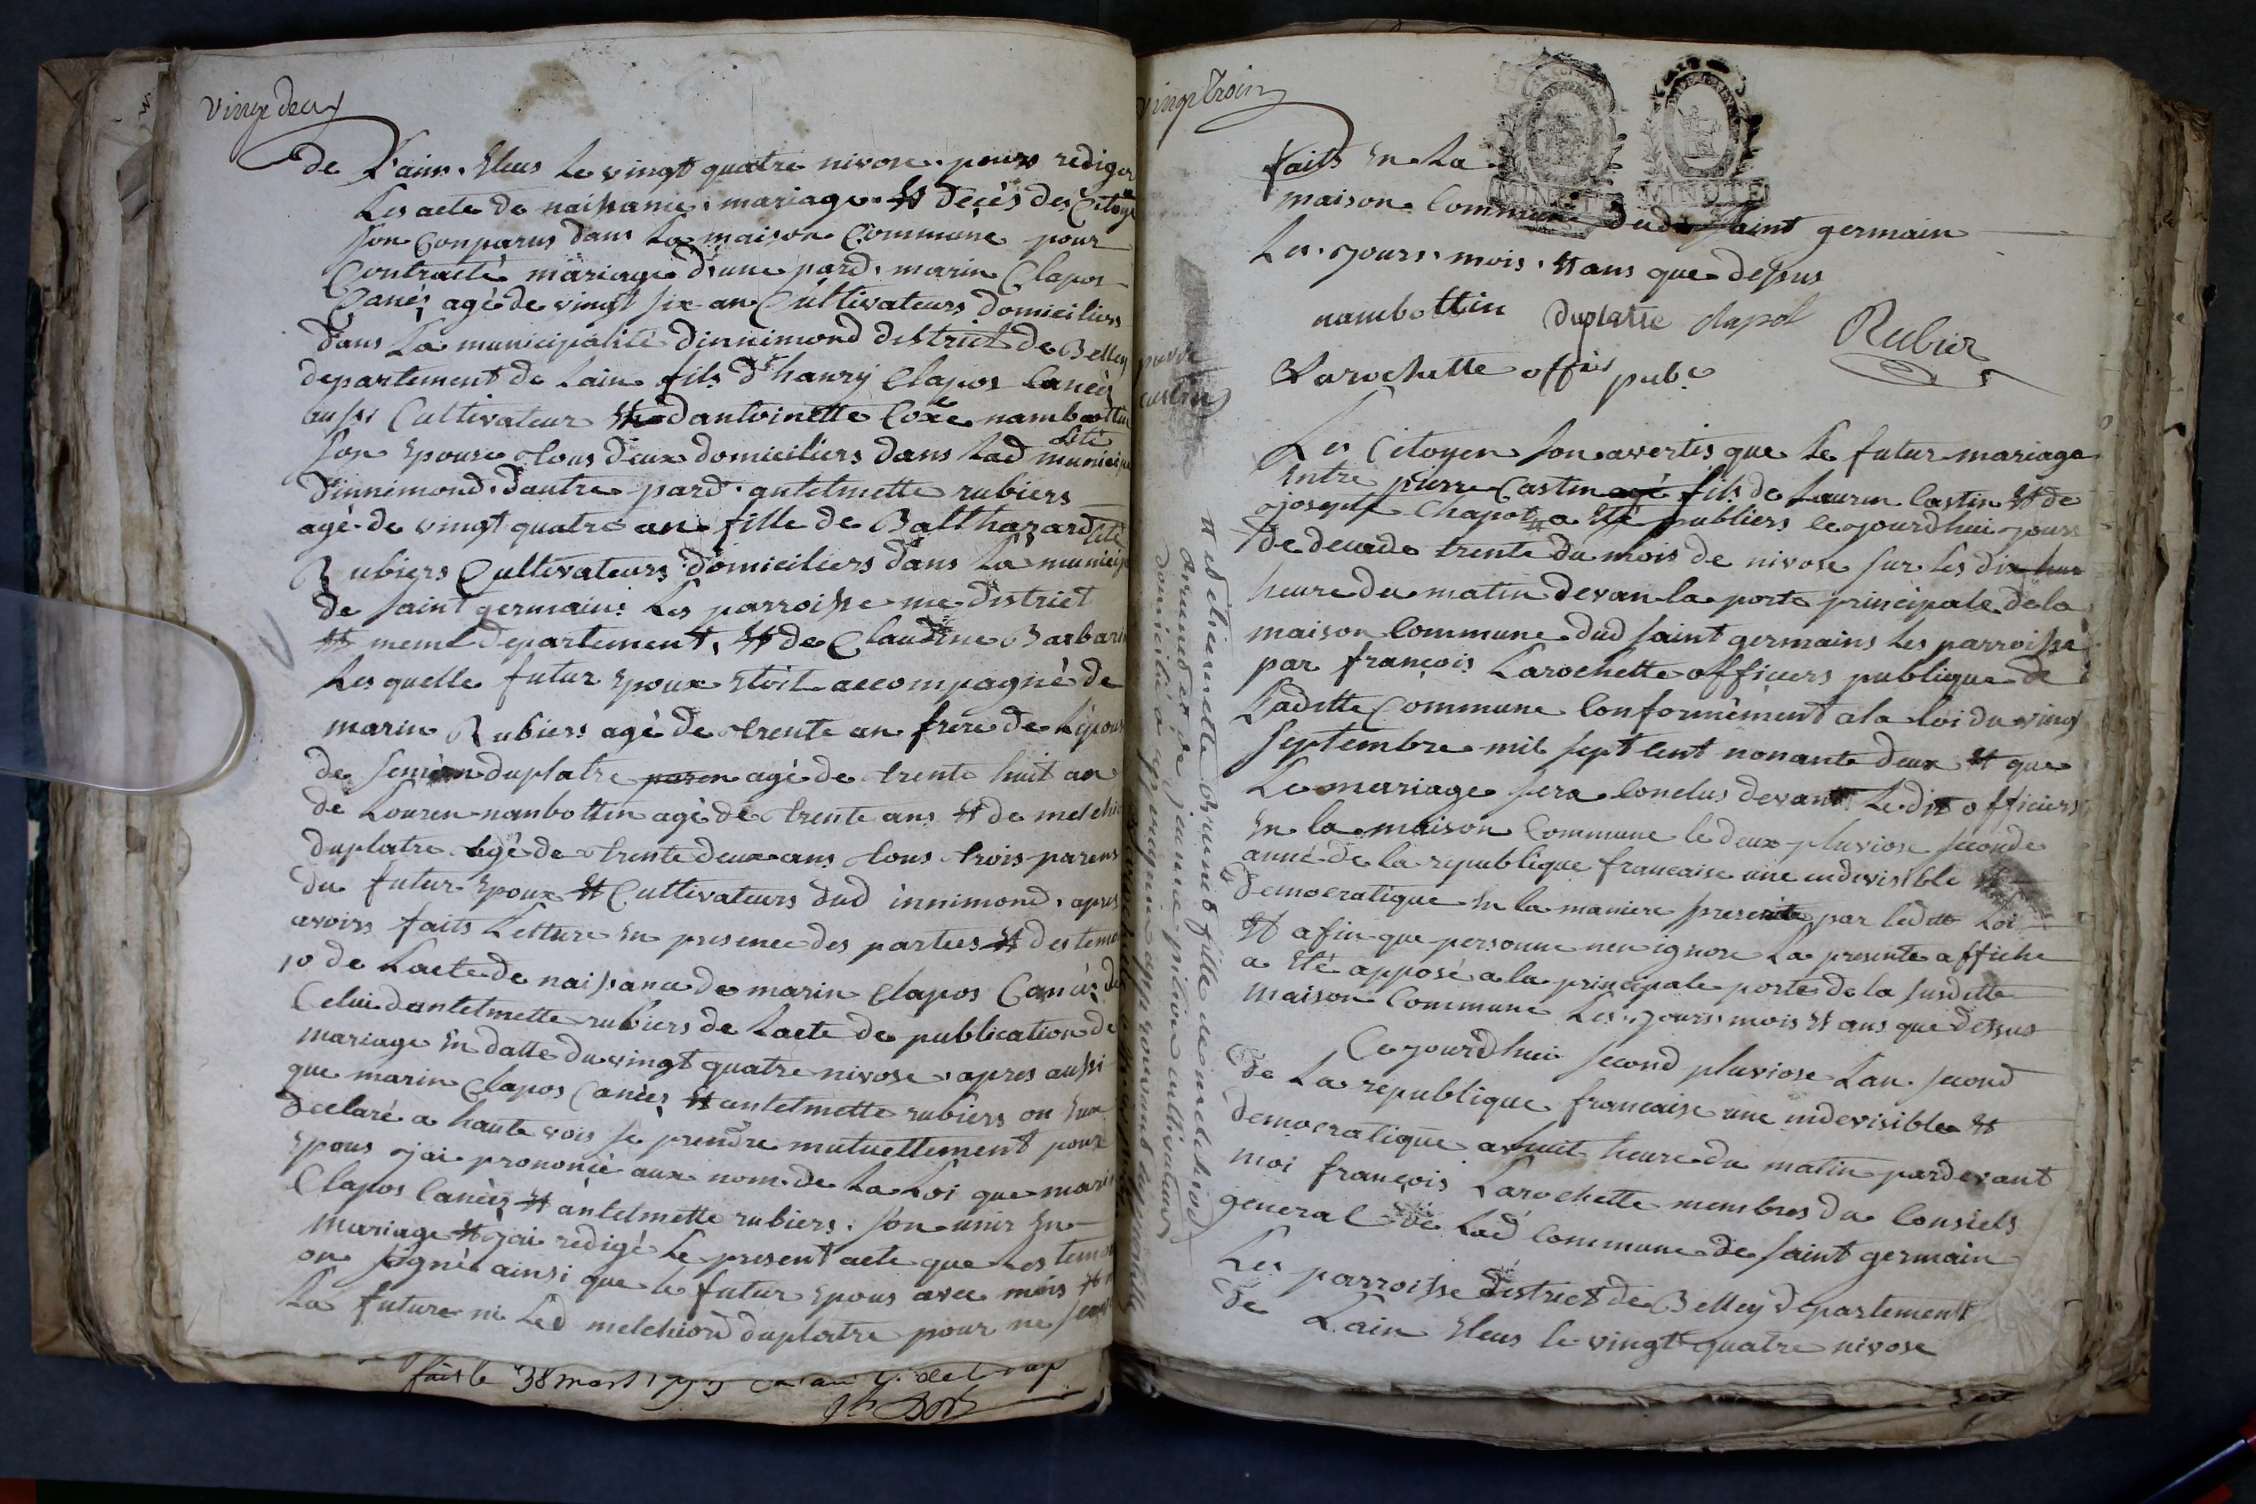 vingt deux
de L'ain. Eleus Le vingt quatre nivose. pours rediger
Les acte de naissance, mariage. Et decès des Citoye
son Conparus dans La maison Commune pour
Contracté mariage d'une pard. marin Clapos
Canès agè de vingt six an Cultivateurs domiciliers
dans La municipalité dinnimond district de Belley
departement de Lain fils d'hanry Clapos Canès
aussi Cultivateur Et dantoinette Coxe nambottin
son Epouse tous deux domiciliers dans Lad municipalité
dinnimond. dautre pard. antelmette rubiers
agè de vingt quatre an fille de Balthazard
Rubiers Cultivateurs domiciliers dans La municipalité
de saint germains Les parroisse me district
Et meme departement, Et de Claudine Barbarin
Les quelle futur Epoux Etoit accompagné de
marin Rubiers agè de trente an frere de Lépouse
de duplatre paren agè de trente huit an
de Louren nambottin agè de trente ans Et de melchior
duplatre agè de trente deux ans tous trois parens
du futur Epoux Et Cultivateurs dud innimond. apres
avoirs faits Letture En presence des parties Et des temoin
1º de Lacte de naissance de marin Clapos Canès de
Celui dantelmette rubiers de Lacte de publication de
mariage En datte du vingt quatre nivose. apres aussi
que marin Clapos Canès Et antelmette rubiers on Eux
declaré a haute vois se prendre mutuettement pour
Epous jai prononcé aux nom de La Loi que marin
Clapos Canès Et antelmette rubiers. son unir En
mariage Et jai redigè Le present acte que Les temoin
on signé ainsi que le futur Epous avec mois Et
La future ni Led melchiord duplatre pour ne
fait le 1793
vingt Trois
faits En La
maison Commune dudi saint germain
Les jours. mois. Et ans que dessus
nambottin duplatre clapot Rubier
Larochette offis pube
pierre
castin
Les Citoyen son avertis que Le futur mariage
Entre pierre Castin agè fils de Lauren Castin Et de
josephe Chapot # a Eté publiers cejourdhui jours
de decade trente du mois de nivose sur Les dix heur
heure du matin devan la porte principale de la
maison Commune dud saint germains Les parroisse
par françois Larochette officiers publique de
Laditte Commune Conformèment a la loi du vingt
septembre mil sept cent nonante deux Et que
Le mariage sera Conclus devant Le dit officiers
En la maison Commune le deux pluviose seconde
annè de la republique francaise une indivisible Et
democratique En la maniere prescritte par leditte Loi
Et afin que personne nen ignore La presente affiche
a Eté apposé a la principale porte de la susditte
maison Commune Les. jours. mois Et ans que dessus
Cejourdhui second pluviose Lan second
de La republique francaise une indevisible Et
democratique a huit heure du matin pardevant
moi françois Larochette membres du Consiels
general de Lad Commune de saint germain
Les parroisse district de Belley departement
de Lain Eleus le vingt quatre nivose
# Et Etiennette Brunod fille de melchiod
Brunod et de jeanne pitiou cultivateurs